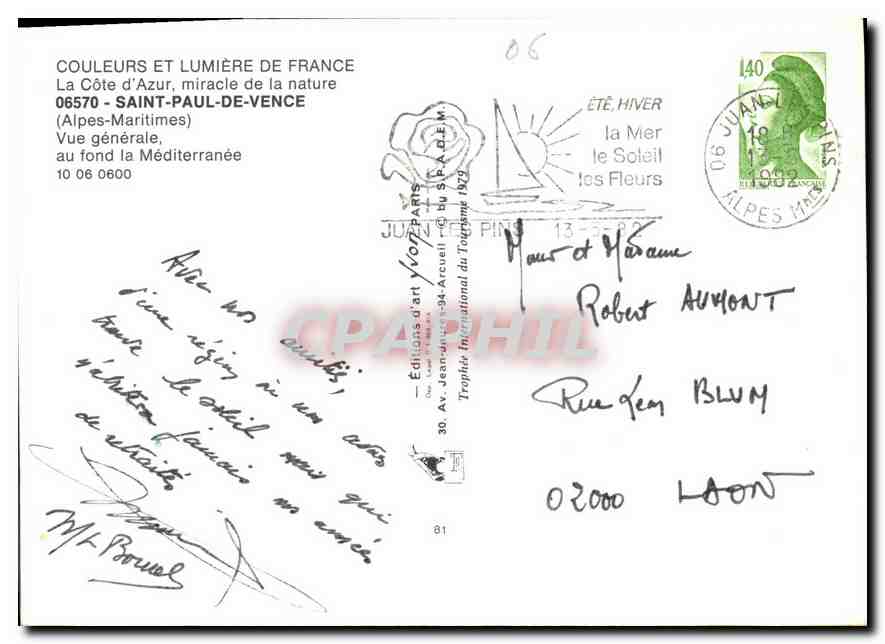 COULEURS ET LUMIÈRE DE FRANCE
La Côte d'Azur, miracle de la nature
06570 - SAINT-PAUL-DE-VENCE
(Alpes-Maritimes)
Vue générale,
au fond la Méditerranée
10 06 0600
06
ÉTÉ, HIVER
la Mer
le Soleil
les Fleurs
JUAN LES PINS 13-5-82
1,40
06 JUAN-LES-PINS
18 H
13-5
1982
ALPES MMES
Avec nos amitiés,
d'une région où nous avons
trouvé le soleil mais qui
n'abritera jamais nos années
de retraités
M/L
— Éditions d'art Yvon PARIS
30, Av. Jean-Jaurès-94-Arcueil © by S.P.A.D.E.M.
Trophée International du Tourisme 1979
81
Robert AUMONT
Rue Léon BLUM
02000 LAON
CPAPHIL